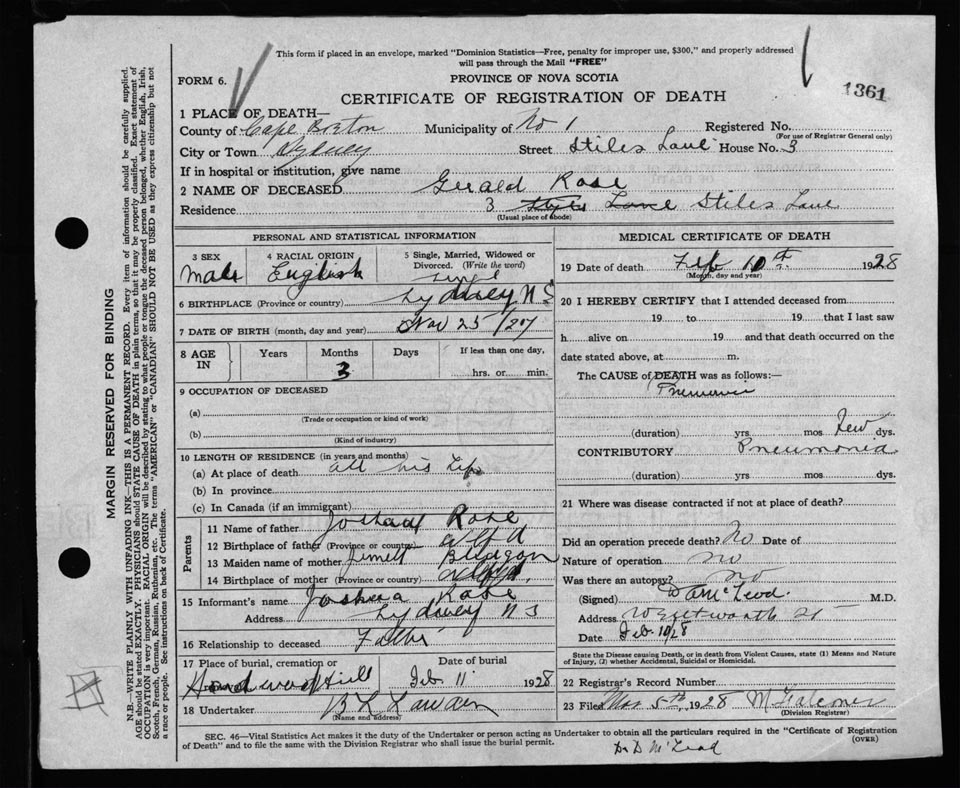 This form if placed in an envelope, marked "Dominion Statistics—Free, penalty for improper use, $300," and properly addressed
will pass through the Mail "FREE"
FORM 6.
PROVINCE OF NOVA SCOTIA
1361
CERTIFICATE OF REGISTRATION OF DEATH
1 PLACE OF DEATH—
County of Cape Breton Municipality of No 1 Registered No.
(For use of Registrar General only)
City or Town Sydney Street Stiles Lane House No. 3
If in hospital or institution, give name
2 NAME OF DECEASED Gerald Rose
Residence 3 Stiles Lane
(Usual place of abode)
PERSONAL AND STATISTICAL INFORMATION
3 SEX 4 RACIAL ORIGIN 5 Single, Married, Widowed or
Divorced. (Write the word)
Male English Single
6 BIRTHPLACE (Province or country) Sydney N S
7 DATE OF BIRTH (month, day and year) Nov 25/27
8 AGE IN Years Months Days If less than one day,
3 hrs. or min.
9 OCCUPATION OF DECEASED
(a)
(Trade or occupation or kind of work)
(b)
(Kind of industry)
10 LENGTH OF RESIDENCE (in years and months)
(a) At place of death all his Life
(b) In province
(c) In Canada (if an immigrant)
Parents
11 Name of father Rose
12 Birthplace of father (Province or country) Nfld
13 Maiden name of mother
14 Birthplace of mother (Province or country)
15 Informant's name Joshua Rose
Address Sydney N S
16 Relationship to deceased Father
17 Place of burial, cremation or Date of burial
Hardwood Hill Feb 11 1928
18 Undertaker
(Name and address)
MEDICAL CERTIFICATE OF DEATH
19 Date of death Feb 10th 1928
(Month, day and year)
20 I HEREBY CERTIFY that I attended deceased from
19 to 19 that I last saw
h alive on 19 and that death occurred on the
date stated above, at m.
The CAUSE of DEATH was as follows:—
Pneumonia
(duration) yrs mos Few dys.
CONTRIBUTORY Pneumonia
(duration) yrs mos dys.
21 Where was disease contracted if not at place of death?
Did an operation precede death? No Date of
Nature of operation no
Was there an autopsy? no
(Signed) D A McLeod M.D.
Address Wentworth St
Date Feb. 10/28
State the Disease causing Death, or in death from Violent Causes, state (1) Means and Nature
of Injury, (2) whether Accidental, Suicidal or Homicidal.
22 Registrar's Record Number
23 Filed Mar 5th 1928
(Division Registrar)
SEC. 46—Vital Statistics Act makes it the duty of the Undertaker or person acting as Undertaker to obtain all the particulars required in the "Certificate of Registration
of Death" and to file the same with the Division Registrar who shall issue the burial permit.
(OVER)
Dr D McLeod
MARGIN RESERVED FOR BINDING
N.B.—WRITE PLAINLY WITH UNFADING INK—THIS IS A PERMANENT RECORD. Every item of information should be carefully supplied.
AGE should be stated EXACTLY. PHYSICIANS should STATE CAUSE OF DEATH in plain terms, so that it may be properly classified. Exact statement of
OCCUPATION is very important. RACIAL ORIGIN will be described by stating to what people or tongue the deceased person belonged, whether English, Irish,
Scotch, French, German, Russian, Ruthenian, etc. The terms "AMERICAN" or "CANADIAN" SHOULD NOT BE USED as they express citizenship but not
a race or people. See instructions on back of Certificate.